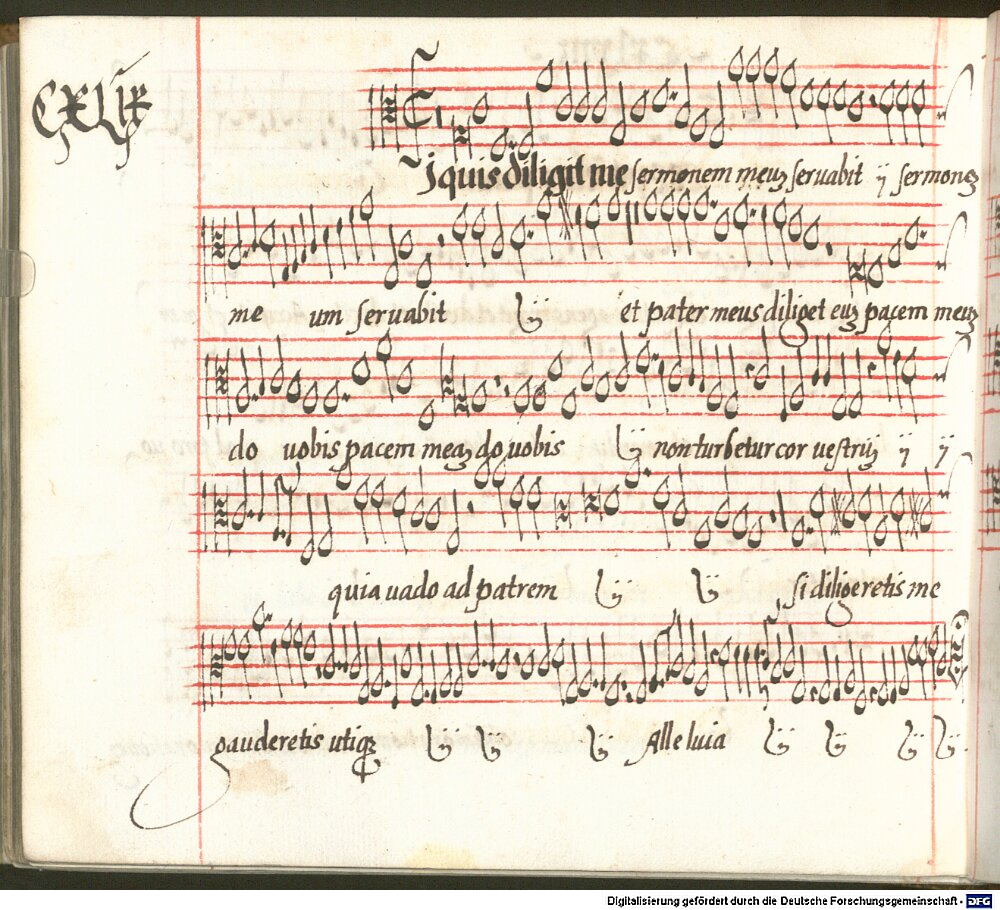 CXLIX
Si quis diligit me sermonem meuʒ seruabit ij sermoneʒ
me um seruabit ij et pater meus diliget euʒ pacem meaʒ
do uobis pacem meaʒ do uobis ij non turbetur cor uestrū ij ij
quia uado ad patrem ij ij si diligeretis me
gauderetis utiqʒ ij ij ij Alleluia ij ij ij ij
Digitalisierung gefördert durch die Deutsche Forschungsgemeinschaft - DFG